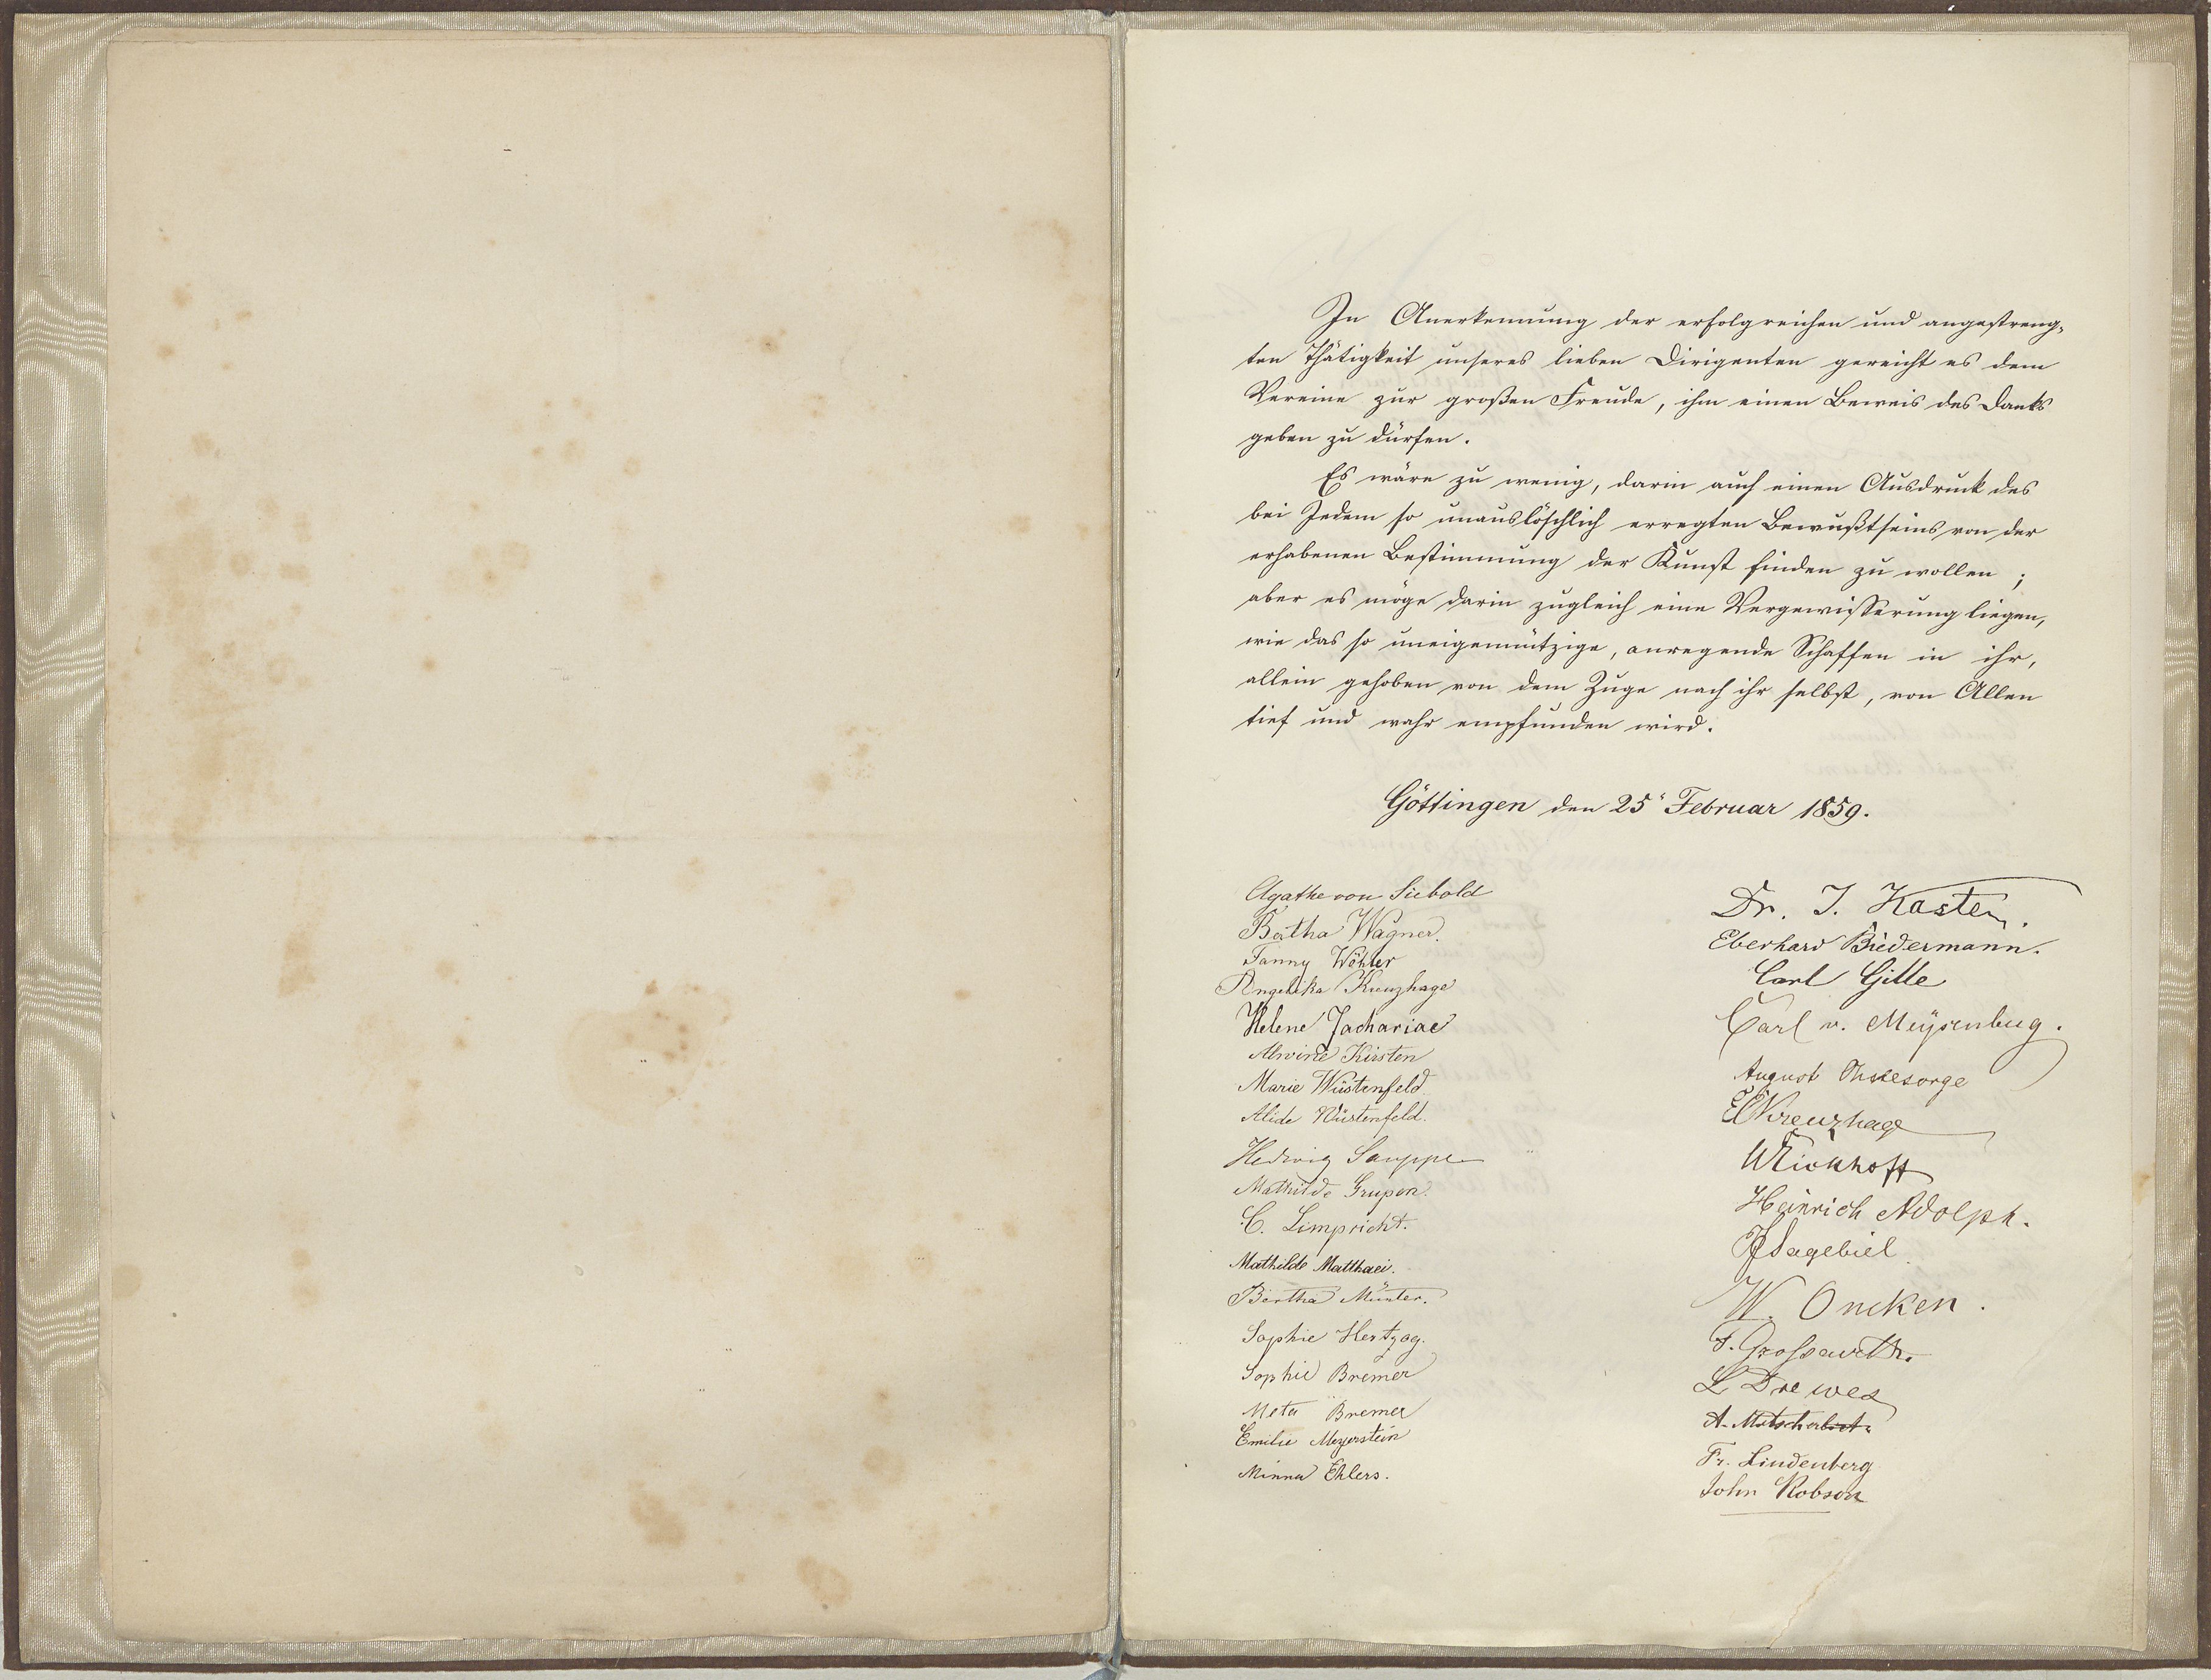 In Anerkennung der erfolgreichen und angestreng-
ten Thätigkeit unseres lieben Dirigenten gereicht es dem
Vereine zur großen Freude, ihm einen Beweis des Danks
geben zu dürfen.
Es wäre zu wenig, darin auch einen Ausdruck des
bei Jedem so unauslöschlich erregten Bewußtseins von der
erhabenen Bestimmung der Kunst finden zu wollen;
aber es möge darin zugleich eine Vergewisserung liegen,
wie das so uneigennützige, anregende Schaffen in ihr,
allein gehoben von dem Zuge nach ihr selbst, von Allen
tief und wahr empfunden wird.
Göttingen den 25 Februar 1859.
Agathe von Siebold
Bertha Wagner.
Fanny Wöhler
Angelika Kreuzhage
Helene Zachariae
Alwine Kirsten
Marie Wüstenfeld
Alide Wüstenfeld.
Hedwig Sauppe
Mathilde Grupen.
C. Limpricht.
Mathilde Matthaei.
Bertha Münter.
Sophie Hertzog.
Sophie Bremer
Meta Bremer
Emilie Meyerstein
Minna Ehlers.
Dr. J. Kasten.
Eberhard Biedermann.
Carl Gille
Carl v. Meÿsenbug.
August
E Kreuzhage
Heinrich Adolph.
Sagebiel
W. Oncken.
L Drewes
Fr. Lindenberg
John Robson